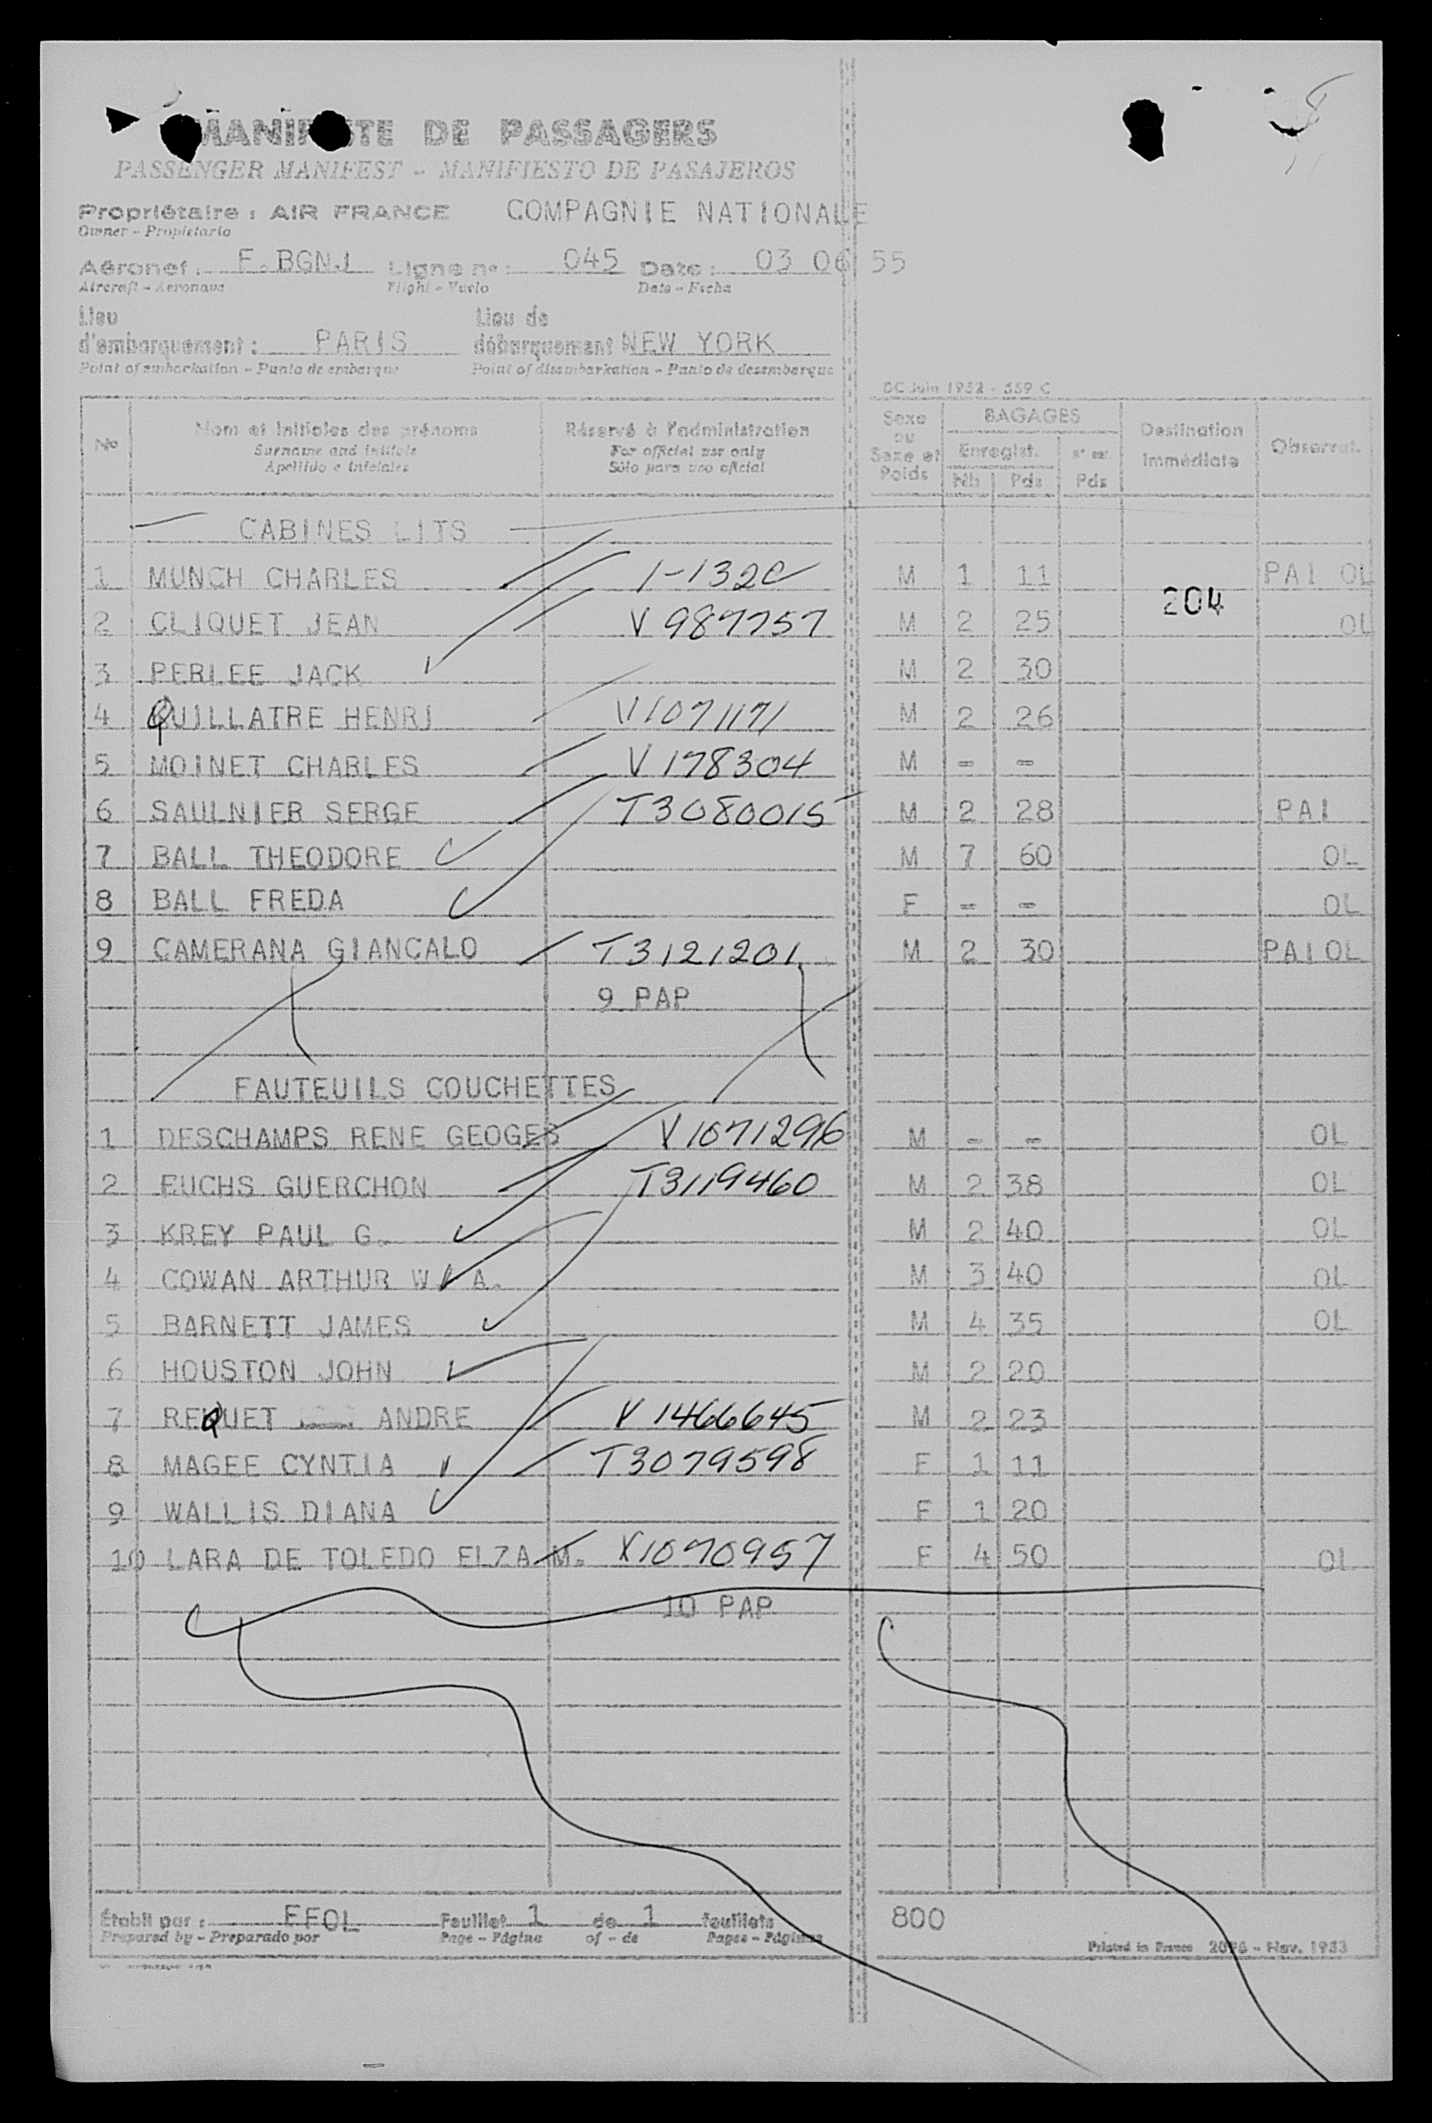 MANIFESTE DE PASSAGERS
PASSENGER MANIFEST - MANIFIESTO DE PASAJEROS
Propriétaire : AIR FRANCE COMPAGNIE NATIONALE
Owner - Propietario
Aéronef : F.BGNJ Ligne n° : 045 Date : 03 06 55
Aircraft - Aeronave Flight - Vuelo Date - Fecha
Lieu d'embarquement : PARIS Lieu de débarquement NEW YORK
Point of embarkation - Punto de embarque Point of disembarkation - Punto de desembarque
DC Juin 1952 - 559 C
No Nom et initiales des prénoms Réservé à l'administration Sexe ou Sexe et Poids BAGAGES Destination immédiate Observat.
Surname and initials For official use only Enregist.
Apellido e iniciales Sólo para uso oficial Nb Pds Pds
CABINES LITS
1 MUNCH CHARLES 1-132C M 1 11 PAI OL
204
2 CLIQUET JEAN V 987757 M 2 25 OL
3 PERLEE JACK M 2 30
4 QUILLATRE HENRI V1071171 M 2 26
5 MOINET CHARLES V 178304 M - -
6 SAULNIER SERGE T3080015 M 2 28 PAI
7 BALL THEODORE M 7 60 OL
8 BALL FREDA F - - OL
9 CAMERANA GIANCALO T3121201 M 2 30 PAI OL
9 PAP
FAUTEUILS COUCHETTES
1 DESCHAMPS RENE GEOGES V1071296 M - - OL
2 FUCHS GUERCHON T3119460 M 2 38 OL
3 KREY PAUL G. M 2 40 OL
4 COWAN ARTHUR W A. M 3 40 OL
5 BARNETT JAMES M 4 35 OL
6 HOUSTON JOHN M 2 20
7 REQUET ANDRE V 1466645 M 2 23
8 MAGEE CYNTIA T3079598 F 1 11
9 WALLIS DIANA F 1 20
10 LARA DE TOLEDO ELZA M. V1070957 F 4 50 OL
10 PAP
Établi par : FFOL Feuillet 1 de 1 feuillets 800
Prepared by - Preparado por Page - Página of - de Pages - Páginas
Printed in France 2096 - Nov. 1953